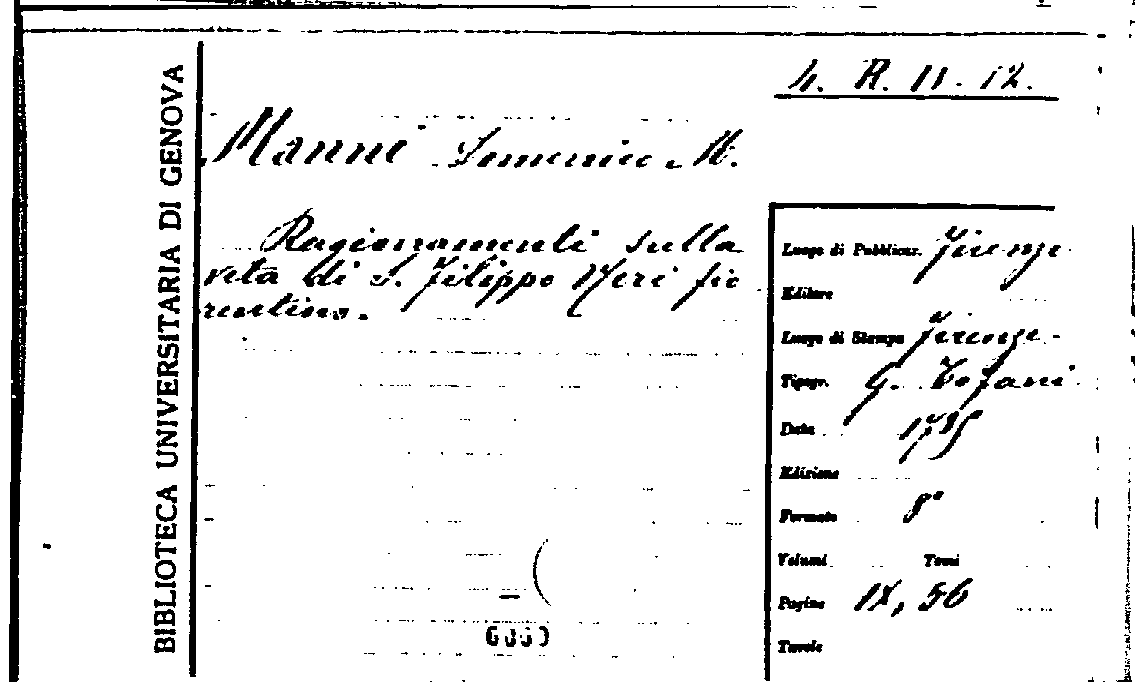 BIBLIOTECA UNIVERSITARIA DI GENOVA
4. R. 11. 12.
Manni Domenico M.
Ragionamenti sulla
vita di S. Filippo Neri fio
rentino.
Luogo di Pubblicaz. Firenze
Editore
Luogo di Stampa Firenze
Tipogr. G. Tofani
Data 1785
Edizione
Formato 8°
Volumi Tomi
Pagine IX, 56
Tavole